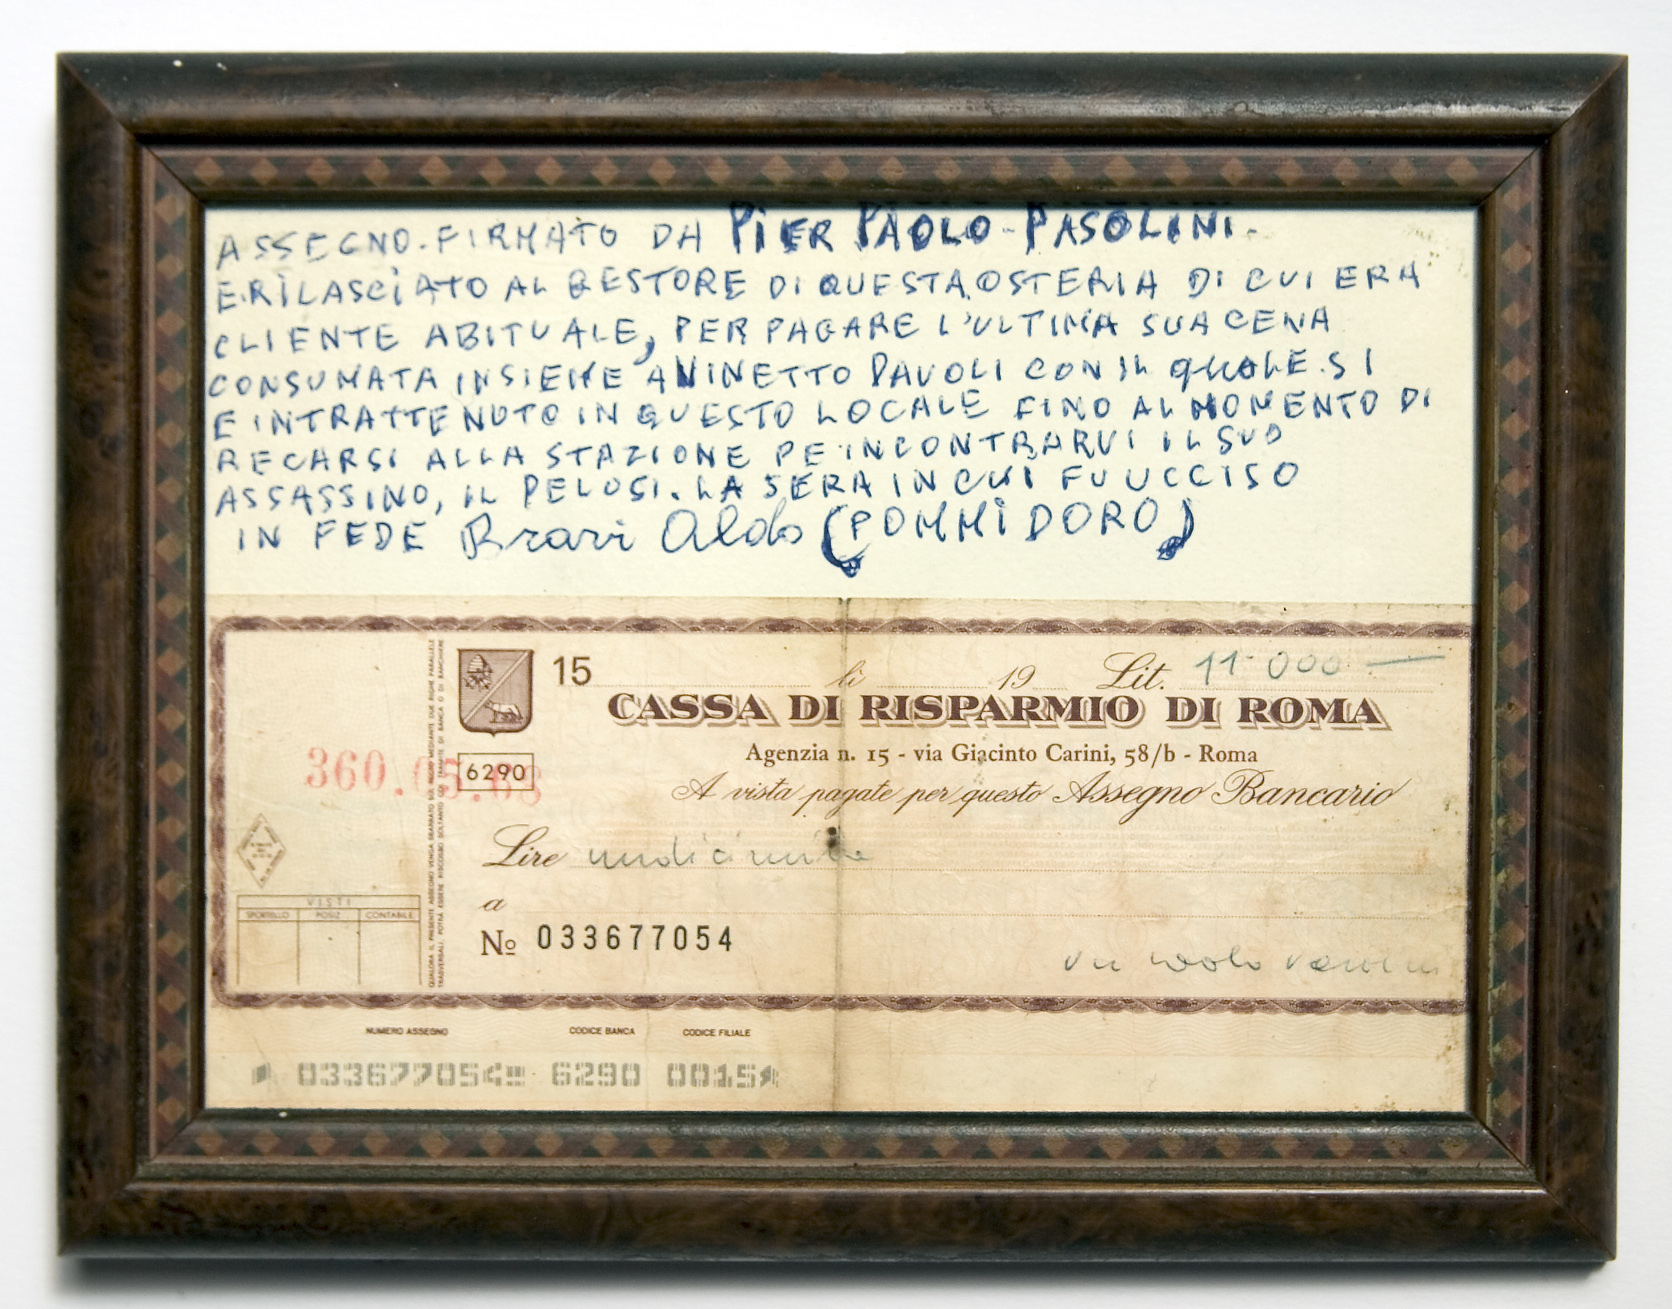 ASSEGNO. FIRMATO DA PIER PAOLO - PASOLINI.
E. RILASCIATO AL GESTORE DI QUESTA OSTERIA DI CUI ERA
CLIENTE ABITUALE, PER PAGARE L'ULTIMA SUA CENA
CONSUMATA INSIEME A NINETTO DAVOLI CON IL QUALE. SI
E' INTRATTENUTO IN QUESTO LOCALE FINO AL MOMENTO DI
RECARSI ALLA STAZIONE PE INCONTRARVI IL SUO
ASSASSINO, IL PELOSI. LA SERA IN CUI FU UCCISO
IN FEDE Bravi Aldo (POMMIDORO)
15 lì 19 Lit. 11.000 —
CASSA DI RISPARMIO DI ROMA
Agenzia n. 15 - via Giacinto Carini, 58/b - Roma
360.05.68
6290
A vista pagate per questo Assegno Bancario
Lire undicimila
a
No 033677054
VISTI
SPORTELLO POSIZ CONTABILE
NUMERO ASSEGNO CODICE BANCA CODICE FILIALE
033677054 6290 0015